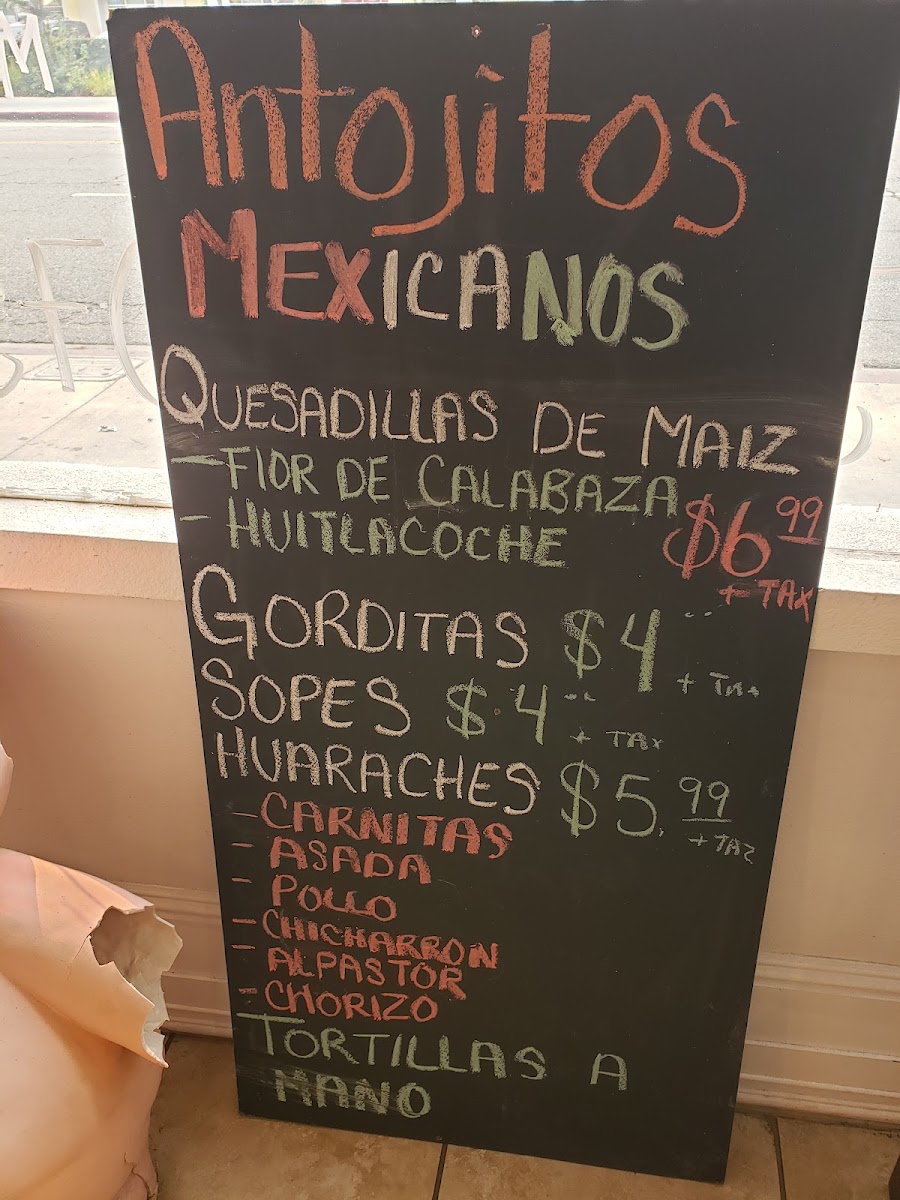 Antojitos
MEXICANOS
QUESADILLAS DE MAIZ
- FlOR DE CALABAZA
- HUITLACOCHE $6 99
+ TAX
GORDITAS $4
+ Tax
SOPES $4
+ TAX
HUARACHES $5.99
+ TAX
- CARNITAS
- ASADA
- POLLO
- CHICHARRON
- ALPASTOR
- CHORIZO
TORTILLAS A
MANO